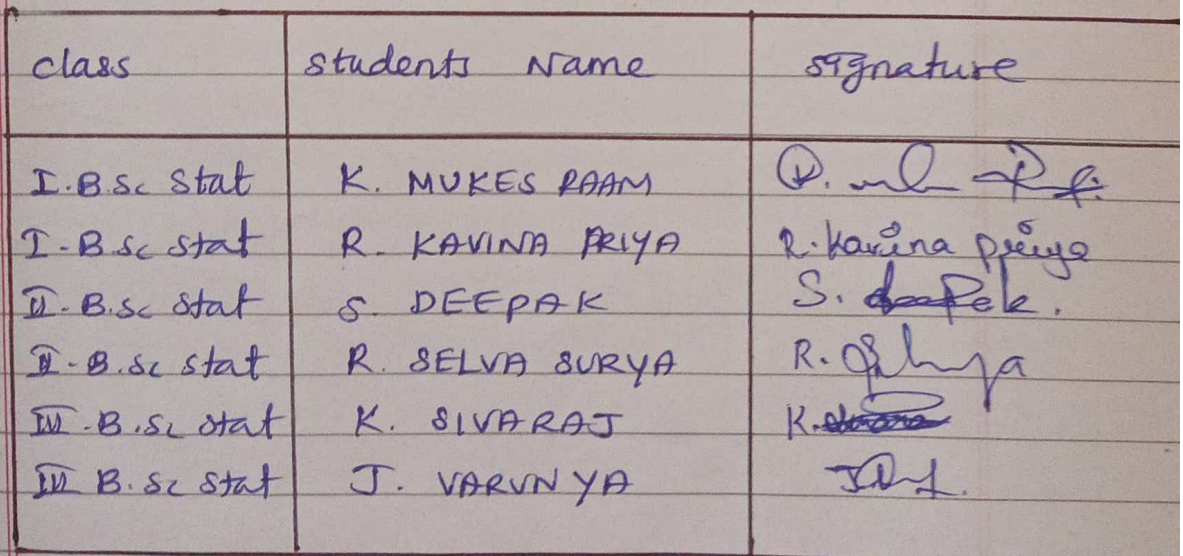 class students Name signature
I. B.Sc Stat K. MUKES RAAM
I. B.Sc Stat R. KAVINA PRIYA R. kavina priya
II. B.Sc Stat S. DEEPAK S. deepak.
II. B.Sc Stat R. SELVA SURYA R.
III. B.Sc Stat K. SIVARAJ K.
III B.Sc Stat J. VARUNYA